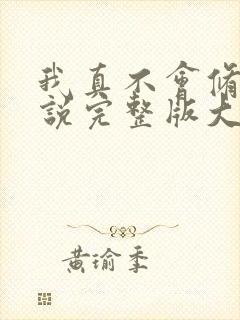 我真不會修
說完整版大
黃瑜季